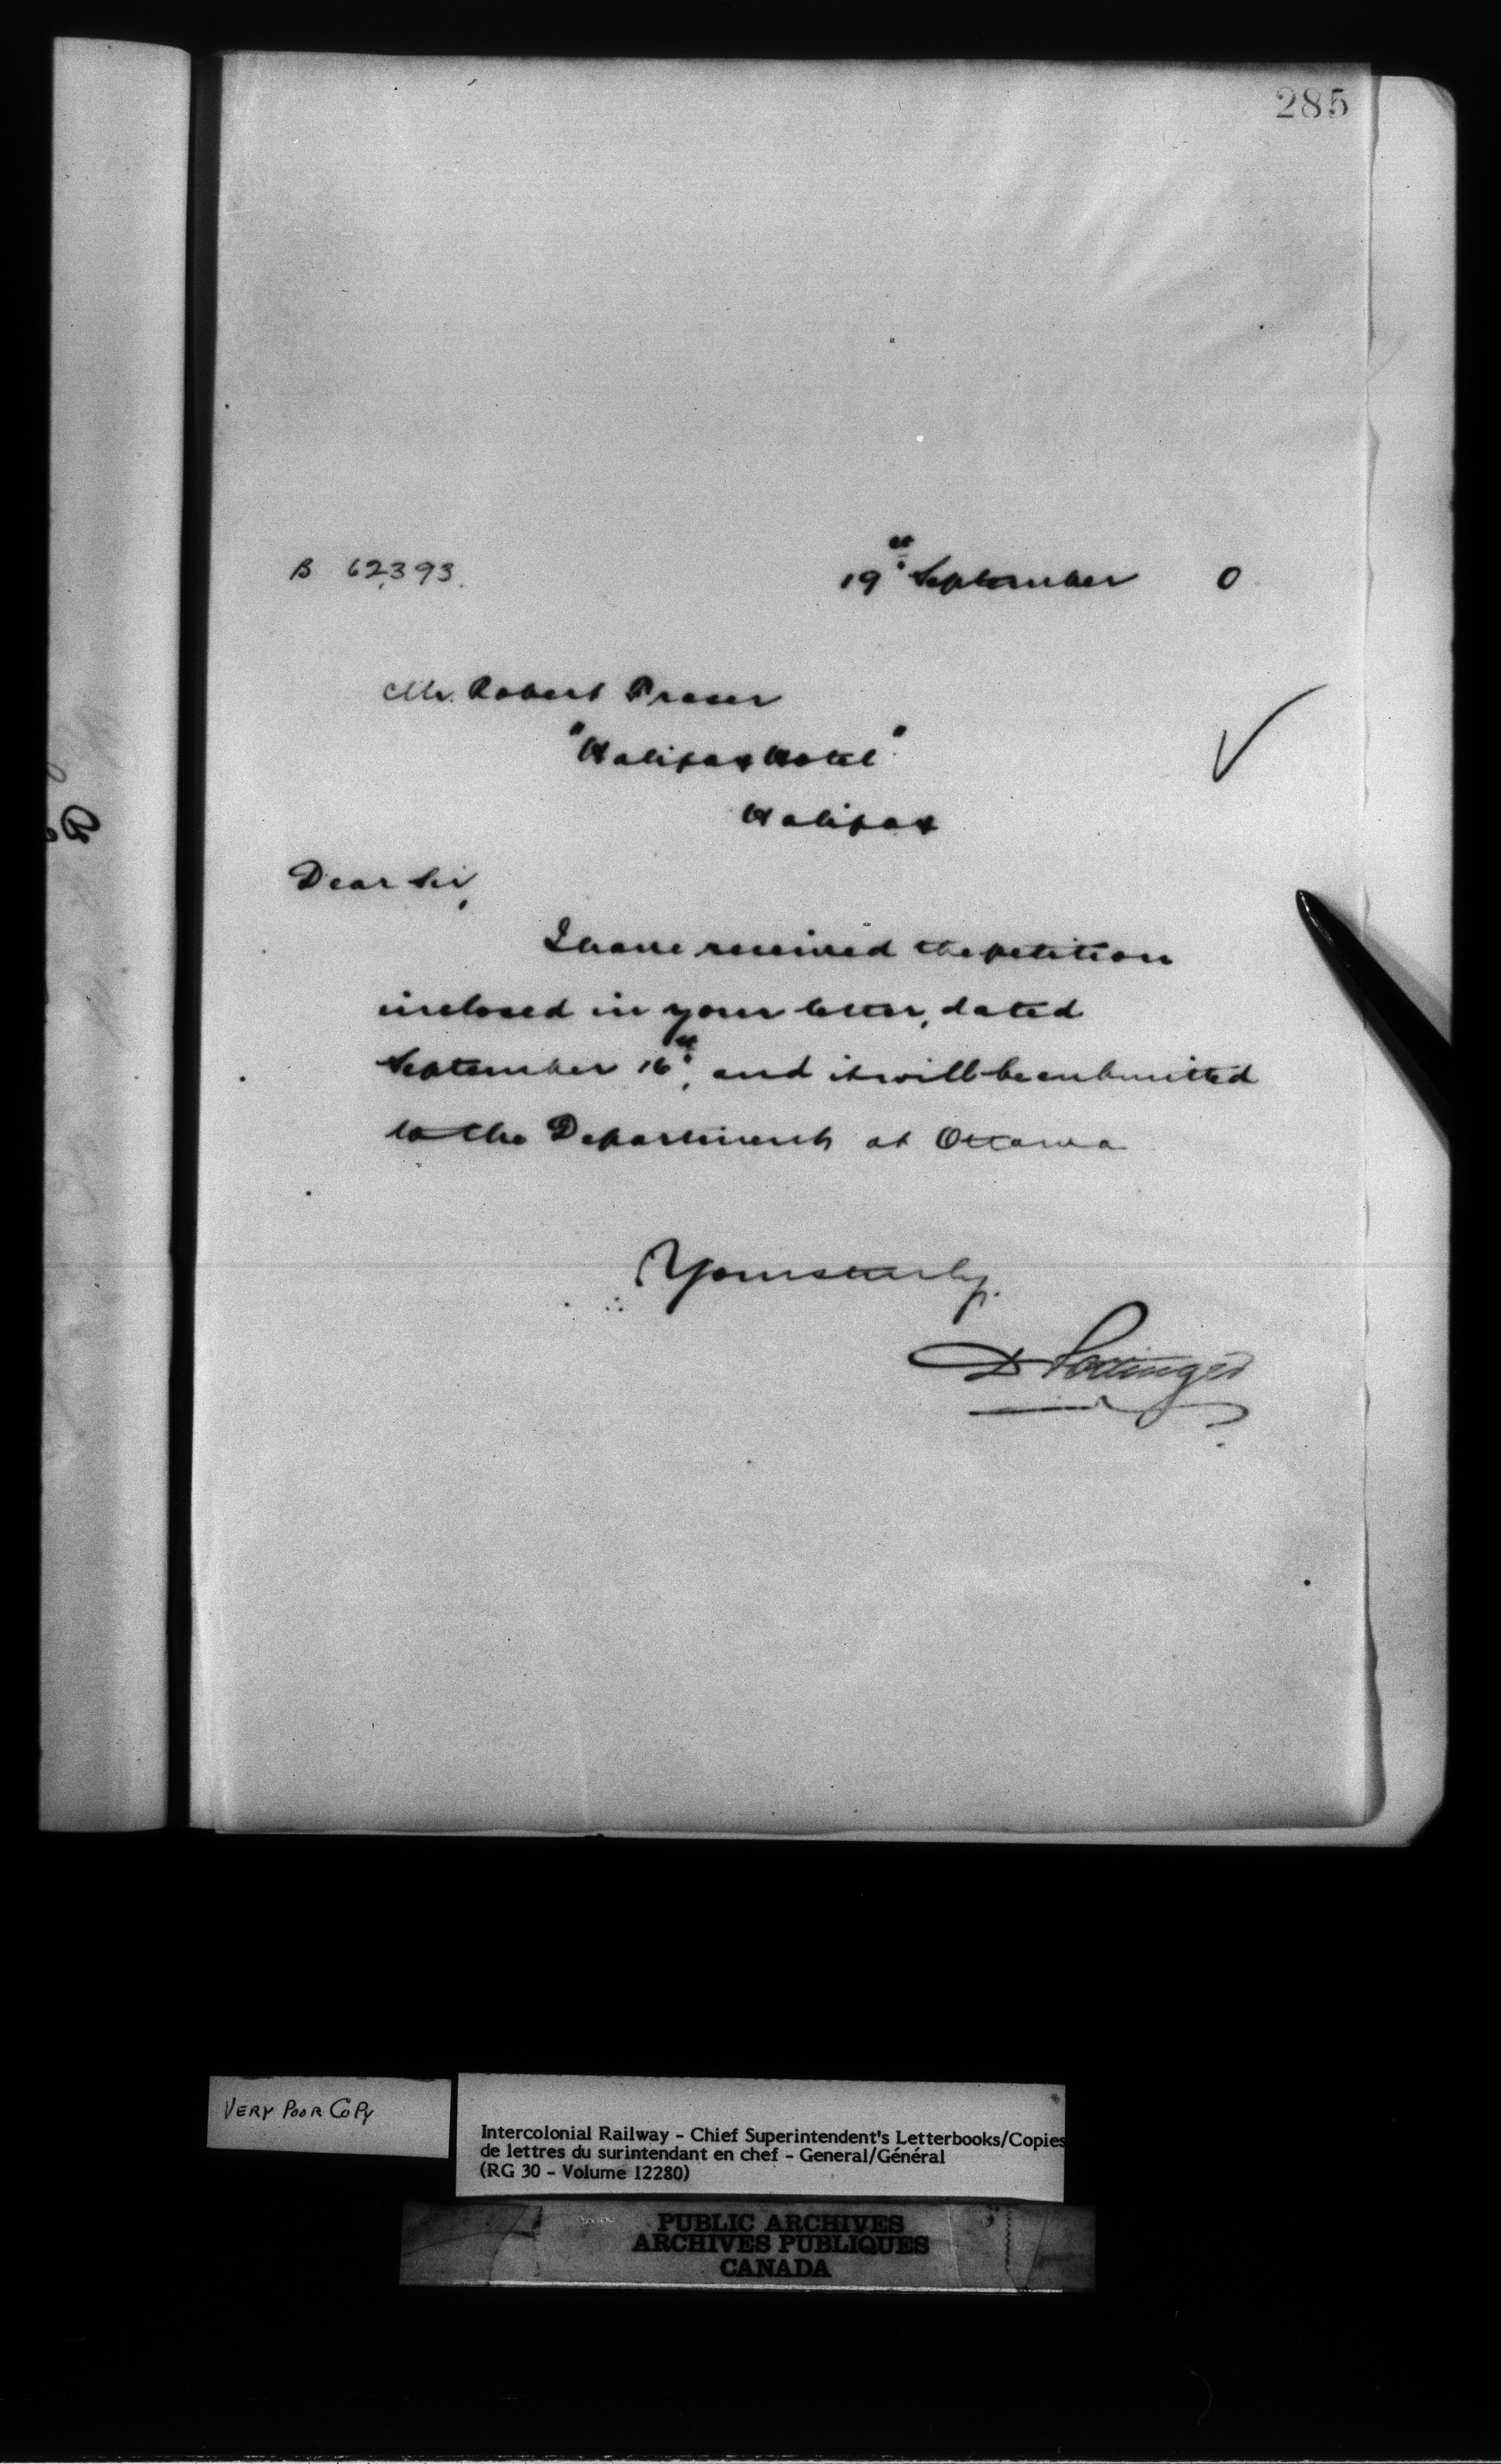 285
B 62393.
19th September 0
Mr. Robert Fraser
"Halifax Hotel"
Halifax
Dear Sir,
I have received the petition
inclosed in your letter, dated
September 16th, and it will be submitted
to the Department at Ottawa
Yours truly,
D Pottinger
VERY POOR COPY
Intercolonial Railway - Chief Superintendent's Letterbooks/Copies
de lettres du surintendant en chef - General/Général
(RG 30 - Volume 12280)
PUBLIC ARCHIVES
ARCHIVES PUBLIQUES
CANADA